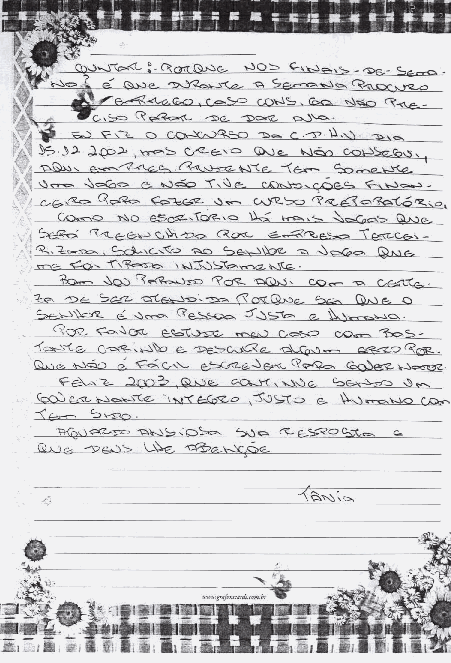 QUNTAR: PORQUE NOS FINAIS-DE-SEMA-
NA? É QUE DURANTE A SEMANA PROCURO
EMPREGO, CASO CONSIGA NÃO PRE-
CISO PARAR DE DAR AULA.
EU FIZ O CONCURSO DA C.D.H.U. DIA
15.12.2002, MAS CREIO QUE NÃO CONSEGUI,
AQUI EM PRES. PRUDENTE TEM SOMENTE
UMA VAGA E NÃO TIVE CONDIÇÕES FINAN-
CEIRA PARA FAZER UM CURSO PREPARATÓRIO,
COMO NO ESCRITORIO HÁ MAIS VAGAS QUE
SERÁ PREENCHIDA POR EMPRESA TERCEI-
RIZADA, SOLICITO AO SENHOR A VAGA QUE
ME FOI TIRADA INJUSTAMENTE.
BOM VOU PARANDO POR AQUI COM A CERTE-
ZA DE SER ATENDIDA PORQUE SEI QUE O
SENHOR É UMA PESSOA JUSTA E HUMANA.
POR FAVOR ESTUDE MEU CASO COM BAS-
TANTE CARINHO E DESCULPE ALGUM ERRO POR-
QUE NÃO É FÁCIL ESCREVER PARA GOVERNADOR
FELIZ 2003, QUE CONTINUE SENDO UM
GOVERNANTE INTEGRO, JUSTO E HUMANO COM
TEM SIDO.
AGUARDO ANSIOSA SUA RESPOSTA E
QUE DEUS LHE ABENÇÕE
TÂNIA
www.grafoncards.com.br